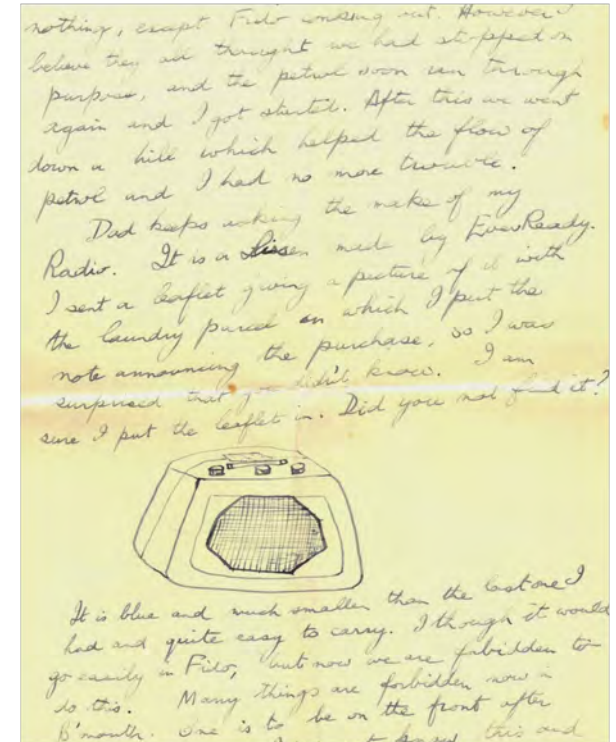 nothing, except Fido conking out. However I
believe they all thought we had stopped on
purpose, and the petrol soon ran through
again and I got started. After this we went
down a hill which helped the flow of
petrol and I had no more trouble.
Dad keeps asking the make of my
Radio. It is a Lissen made by EverReady.
I sent a leaflet giving a picture of it with
the laundry parcel on which I put the
note announcing the purchase, so I was
surprised that you didn't know. I am
sure I put the leaflet in. Did you not find it?
It is blue and much smaller than the last one I
had and quite easy to carry. I though it would
go easily in Fido, but now we are forbidden to
do this. Many things are forbidden now in
B'mouth. One is to be on the front after
this and